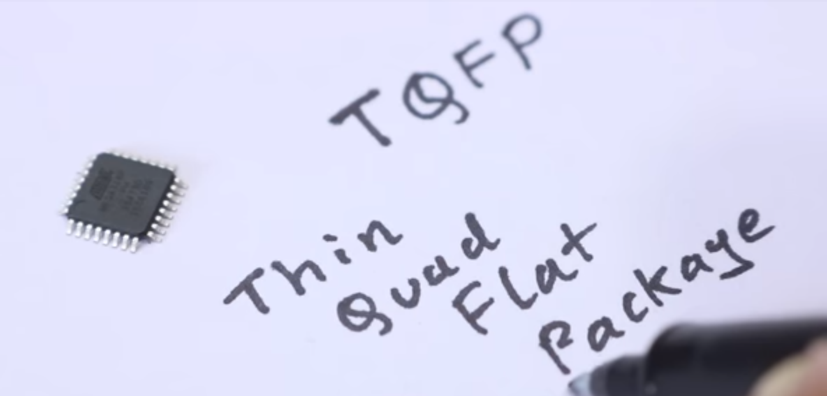 TQFP
Thin
Quad
Flat
Package